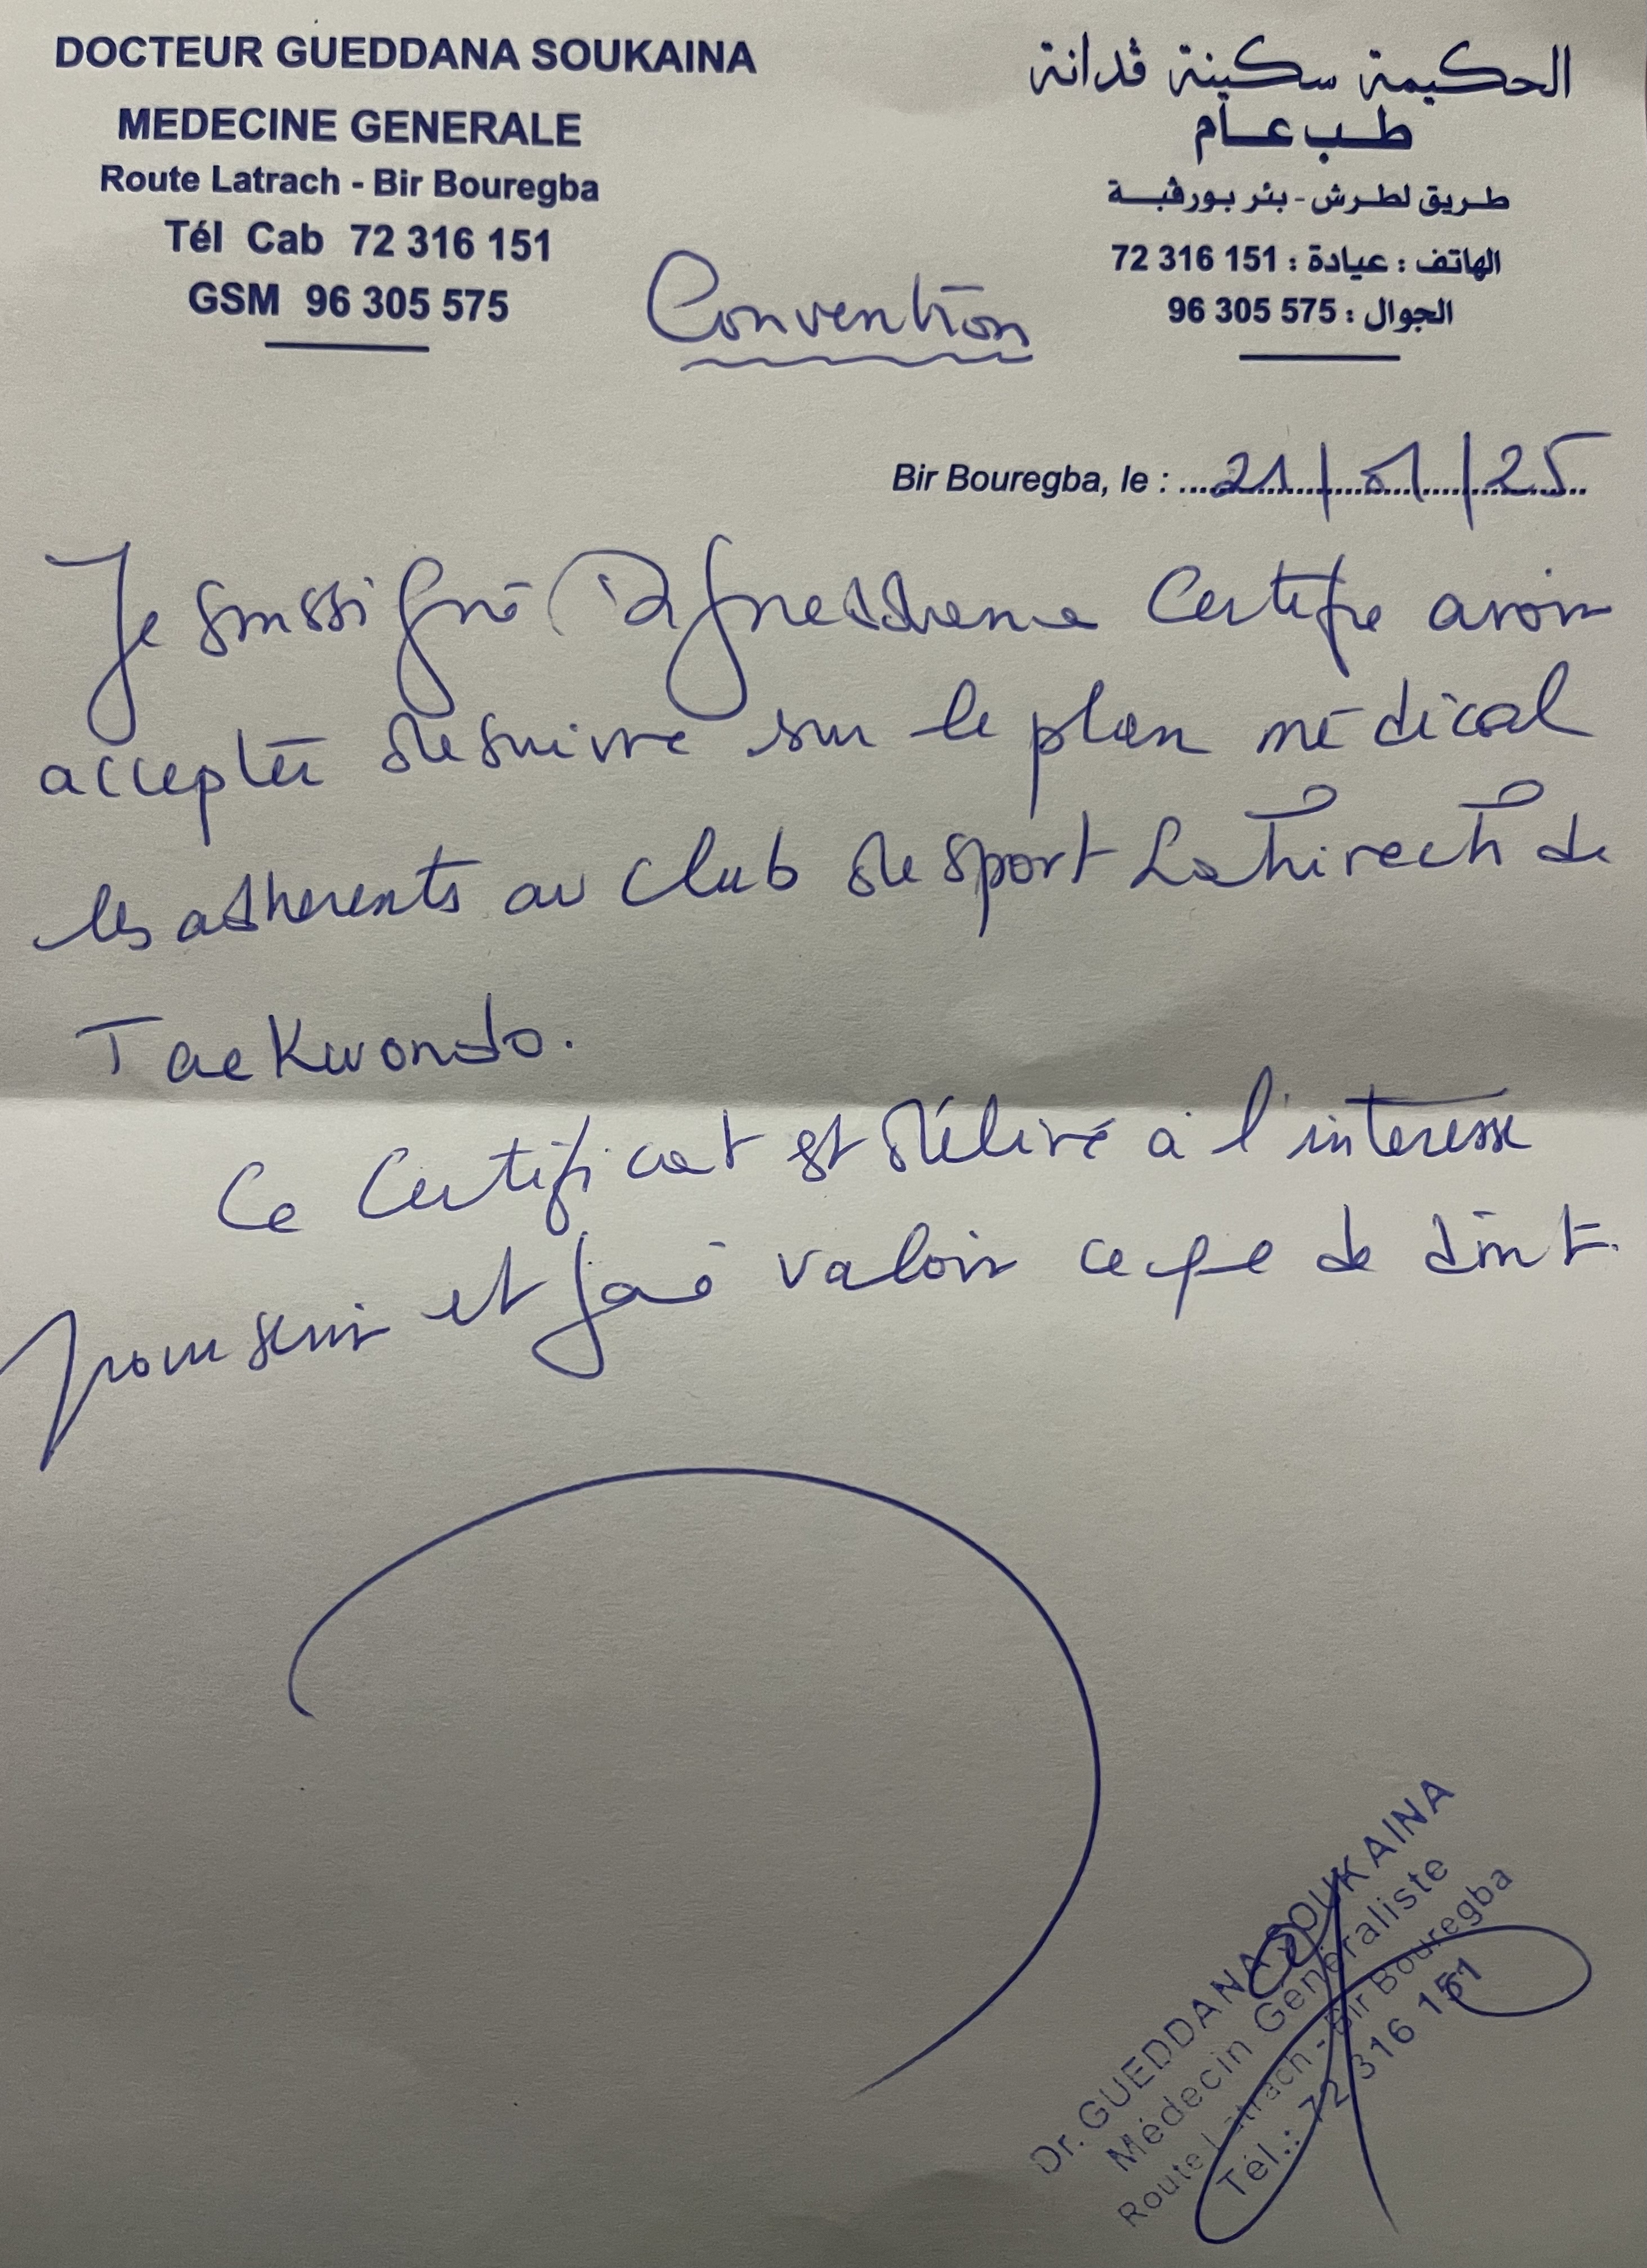 DOCTEUR GUEDDANA SOUKAINA
MEDECINE GENERALE
Route Latrach - Bir Bouregba
Tél Cab 72 316 151
GSM 96 305 575
الحكيمة سكينة ڤدانة
طب عام
طريق لطرش - بئر بورڤبة
الهاتف : عيادة : 151 316 72
الجوال : 575 305 96
Convention
Bir Bouregba, le : 21/01/25
Je soussigné Dr Gueddana Certifie avoir
accepter de suivre sur le plan médical
les adherents au Club de sport de
TaeKwondo.
Ce Certificat est délivré à l'interessé
pour servir et faire valoir ce que de droit.
Dr. GUEDDANA SOUKAINA
Médecin Généraliste
Route Latrach - Bir Bouregba
Tél.: 72 316 151